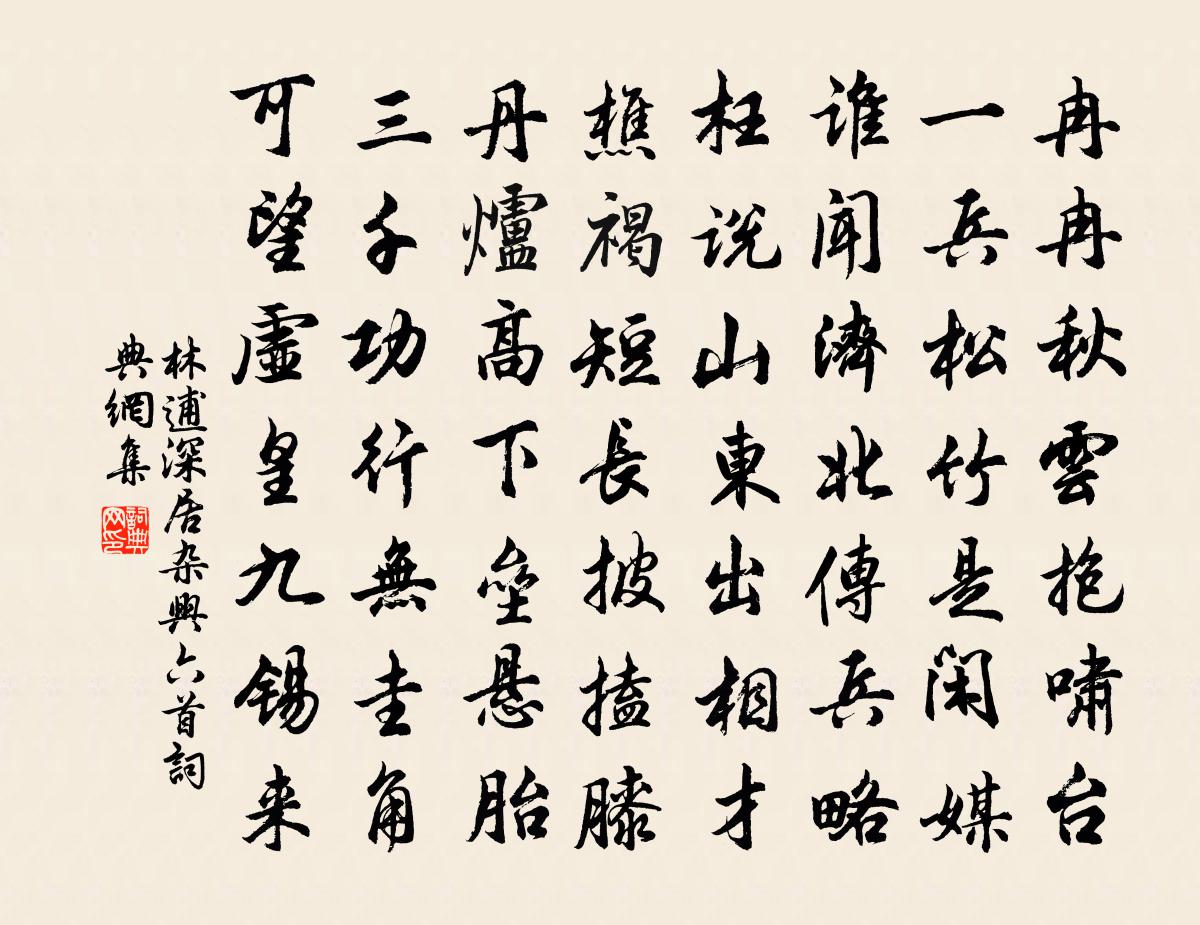 冉冉秋雲抱嘯台
一兵松竹是閑媒
谁聞濟北傳兵略
枉说山東出相才
樵褐短長披搕膝
丹爐高下壘悬胎
三千功行無圭角
可望虛皇九锡来
林逋深居杂興六首詞
典網集
詞典网印